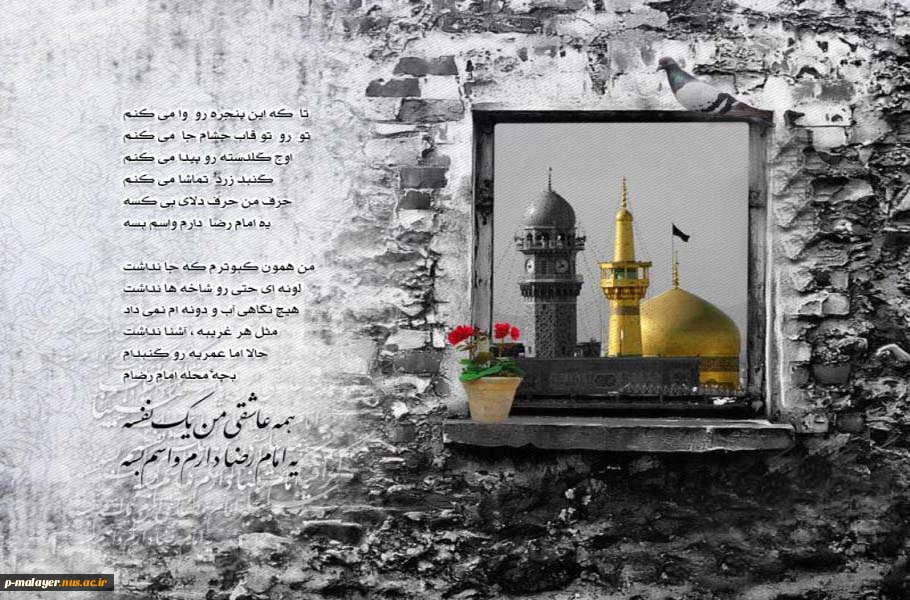 تا که این پنجره رو وا می کنم
تو رو تو قاب چشام جا می کنم
اوج گلدسته رو پیدا می کنم
گنبد زردُ تماشا می کنم
حرف من حرف دلای بی کسه
یه امام رضا دارم واسم بسه
من همون کبوترم که جا نداشت
لونه ای حتی رو شاخه ها نداشت
هیچ نگاهی آب و دونه ام نمی داد
مثل هر غریبه ، آشنا نداشت
حالا اما عمریه رو گنبدام
بچهٔ محله امام رضام
همه عاشقی من یک نفسه
یه امام رضا دارم واسم بسه
p-malayer.nus.ac.ir